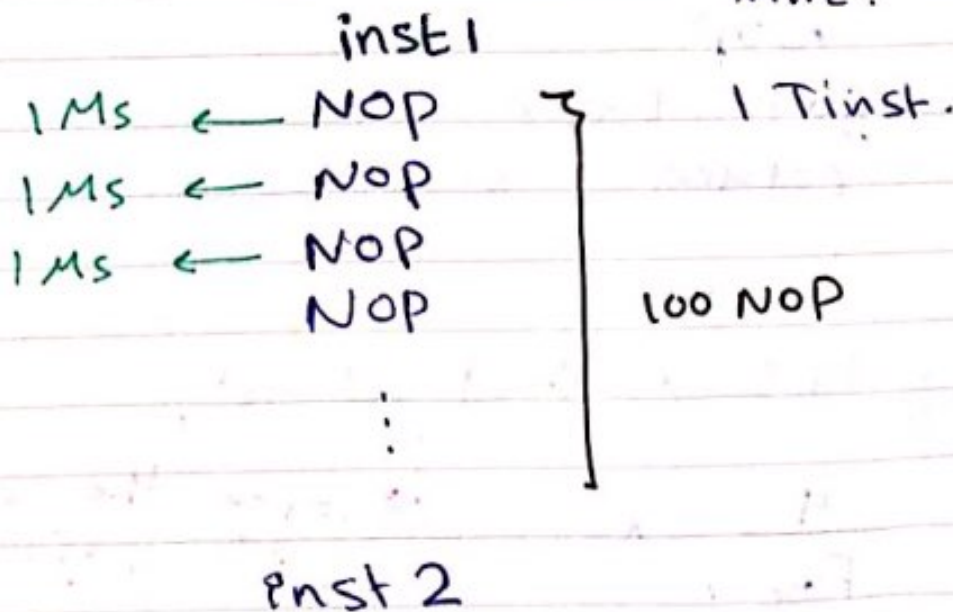 inst 1
1 Ms ← NOP } 1 Tinst.
1 Ms ← NOP
1 Ms ← NOP
NOP 100 NOP
⋮
inst 2